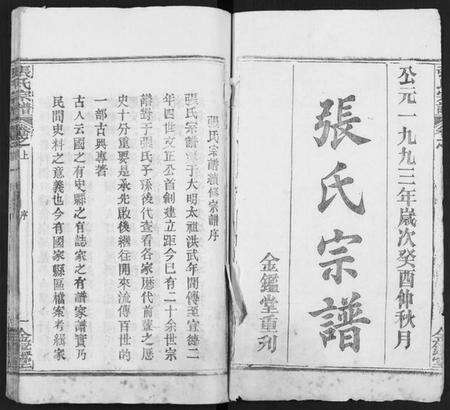 公元一九九三年歲次癸酉仲秋月
張氏宗譜
金鑑堂重刋
張氏宗譜續修宗譜序
張氏宗譜 于大明太祖洪武年間傳至宣德二
年四世文正公首創建立距今已有二十余世宗
譜對于張氏子孫後代查看各家歷代前輩之歷
史十分重要是承先啟後繼往開來流傳百世的
一部古典專著
古人云國之有史縣之有誌家之有譜家譜實乃
民間史料之意義也今有國家縣區檔案考綴家
張氏宗譜
卷之上
序
一
金鑑堂